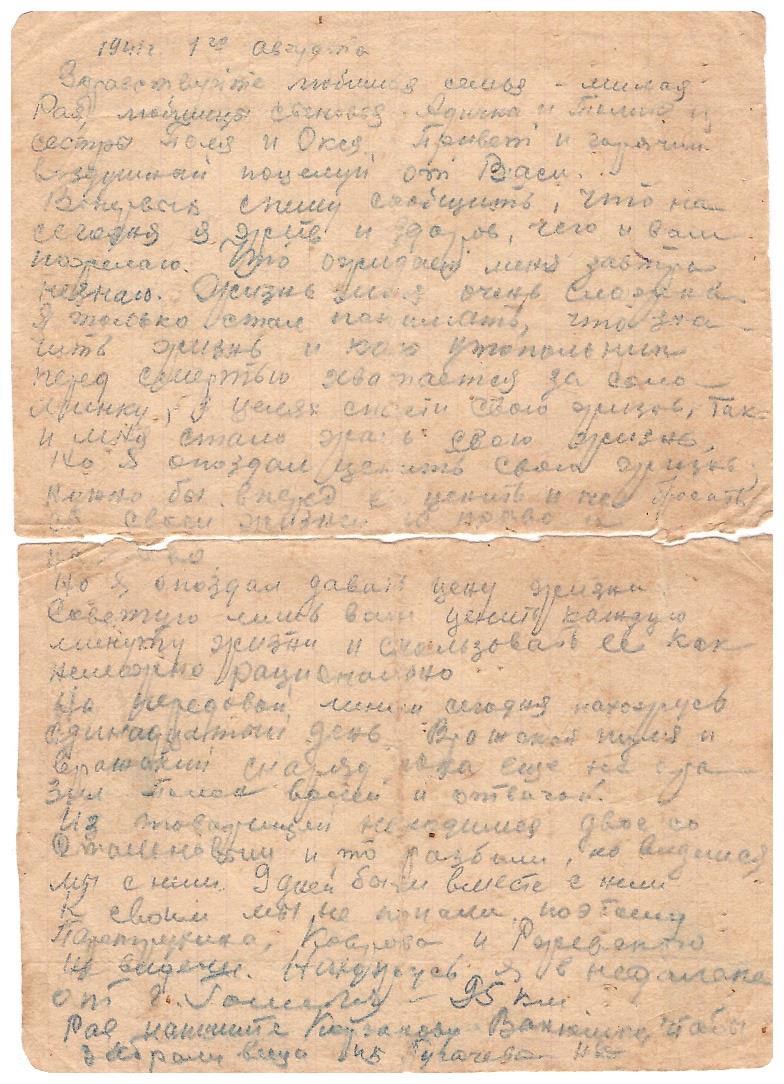 1941 г 1го августа
Здравствуйте любимая семья – милая
Рая, любимцы сыновья – Адичка и Толик и
сестры Поля и Окся. Привет и горячий
воздушный поцелуй от Васи.
Впервых спешу сообщить, что на
сегодня я жив и здоров, чего и вам
пожелаю. Что ожидает меня завтра
незнаю. Жизнь моя очень сложна
Я только стал понимать, что зна–
чить жизнь и как утопольник
перед смертью хватается за соло–
минку, в целях спасти свою жизнь, так–
и мне стало жаль свою жизнь.
Но я опоздал ценить свою жизнь,
нужно бы вперед ё ценить и не бросать
своей жизней в право и
на лево
Но я опоздал давать цену жизни
Советую лишь вам ценить каждую
минуту жизни и спользовать ее как
неможно рационально
На передовой линии сегодня нахожусь
единадцатый день. Вражеская пуля и
вражеский снаряд пока еще не сра–
зил. Полон врагей и отвагой.
Из товарищей находимся двое со
и то разбили, но видимся
мы с ним. 9 дней были вместе с ним
К своим мы не попали, поэтому
Коврова и
не видели. Нахожусь я в недалеко
от г. Гомеля – 95 км
Рая напишите Ванюшке, чтобы
забрали вещи из Пугачева